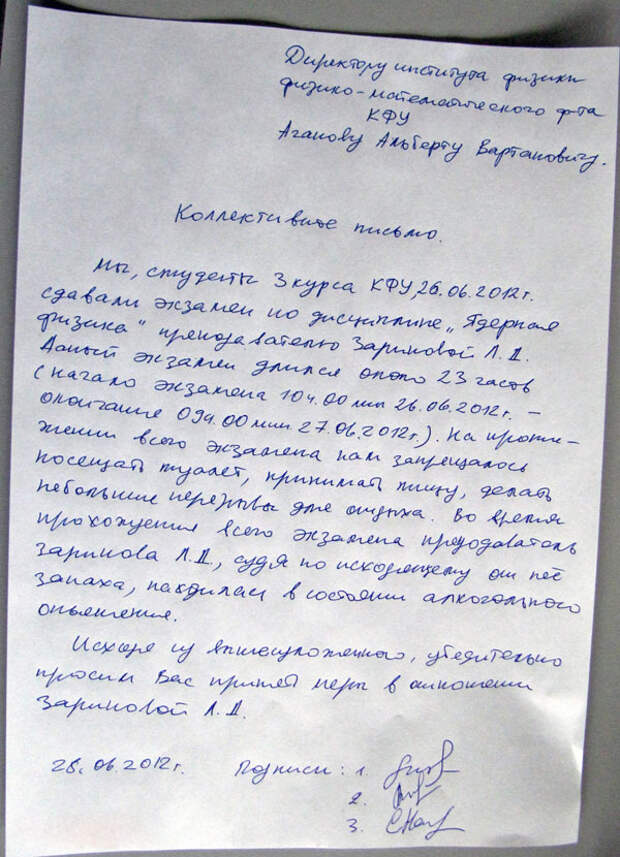 Директору института физики
физико-математического ф-та
КФУ
Аганову Альберту Вартановичу.
Коллективное письмо.
Мы, студенты 3 курса КФУ, 26.06.2012г.
сдавали экзамен по дисциплине „Ядерная
физика" преподавателю Зариповой Л.Д.
Даный экзамен длился около 23 часов
(начало экзамена 10ч.00мин 26.06.2012г. –
окончание 09ч.00мин 27.06.2012г.). На протя-
жении всего экзамена нам запрещалось
посещать туалет, принимать пищу, делать
небольшие перерывы для отдыха. Во время
прохождения всего экзамена преподаватель
Зарипова Л.Д., судя по исходящему от неё
запаха, находилась в состоянии алкогольного
опьянения.
Исходя из вышеизложенного, убедительно
просим Вас принять меры в отношении
Зариповой Л.Д.
28.06.2012г. Подписи: 1.
2.
3.